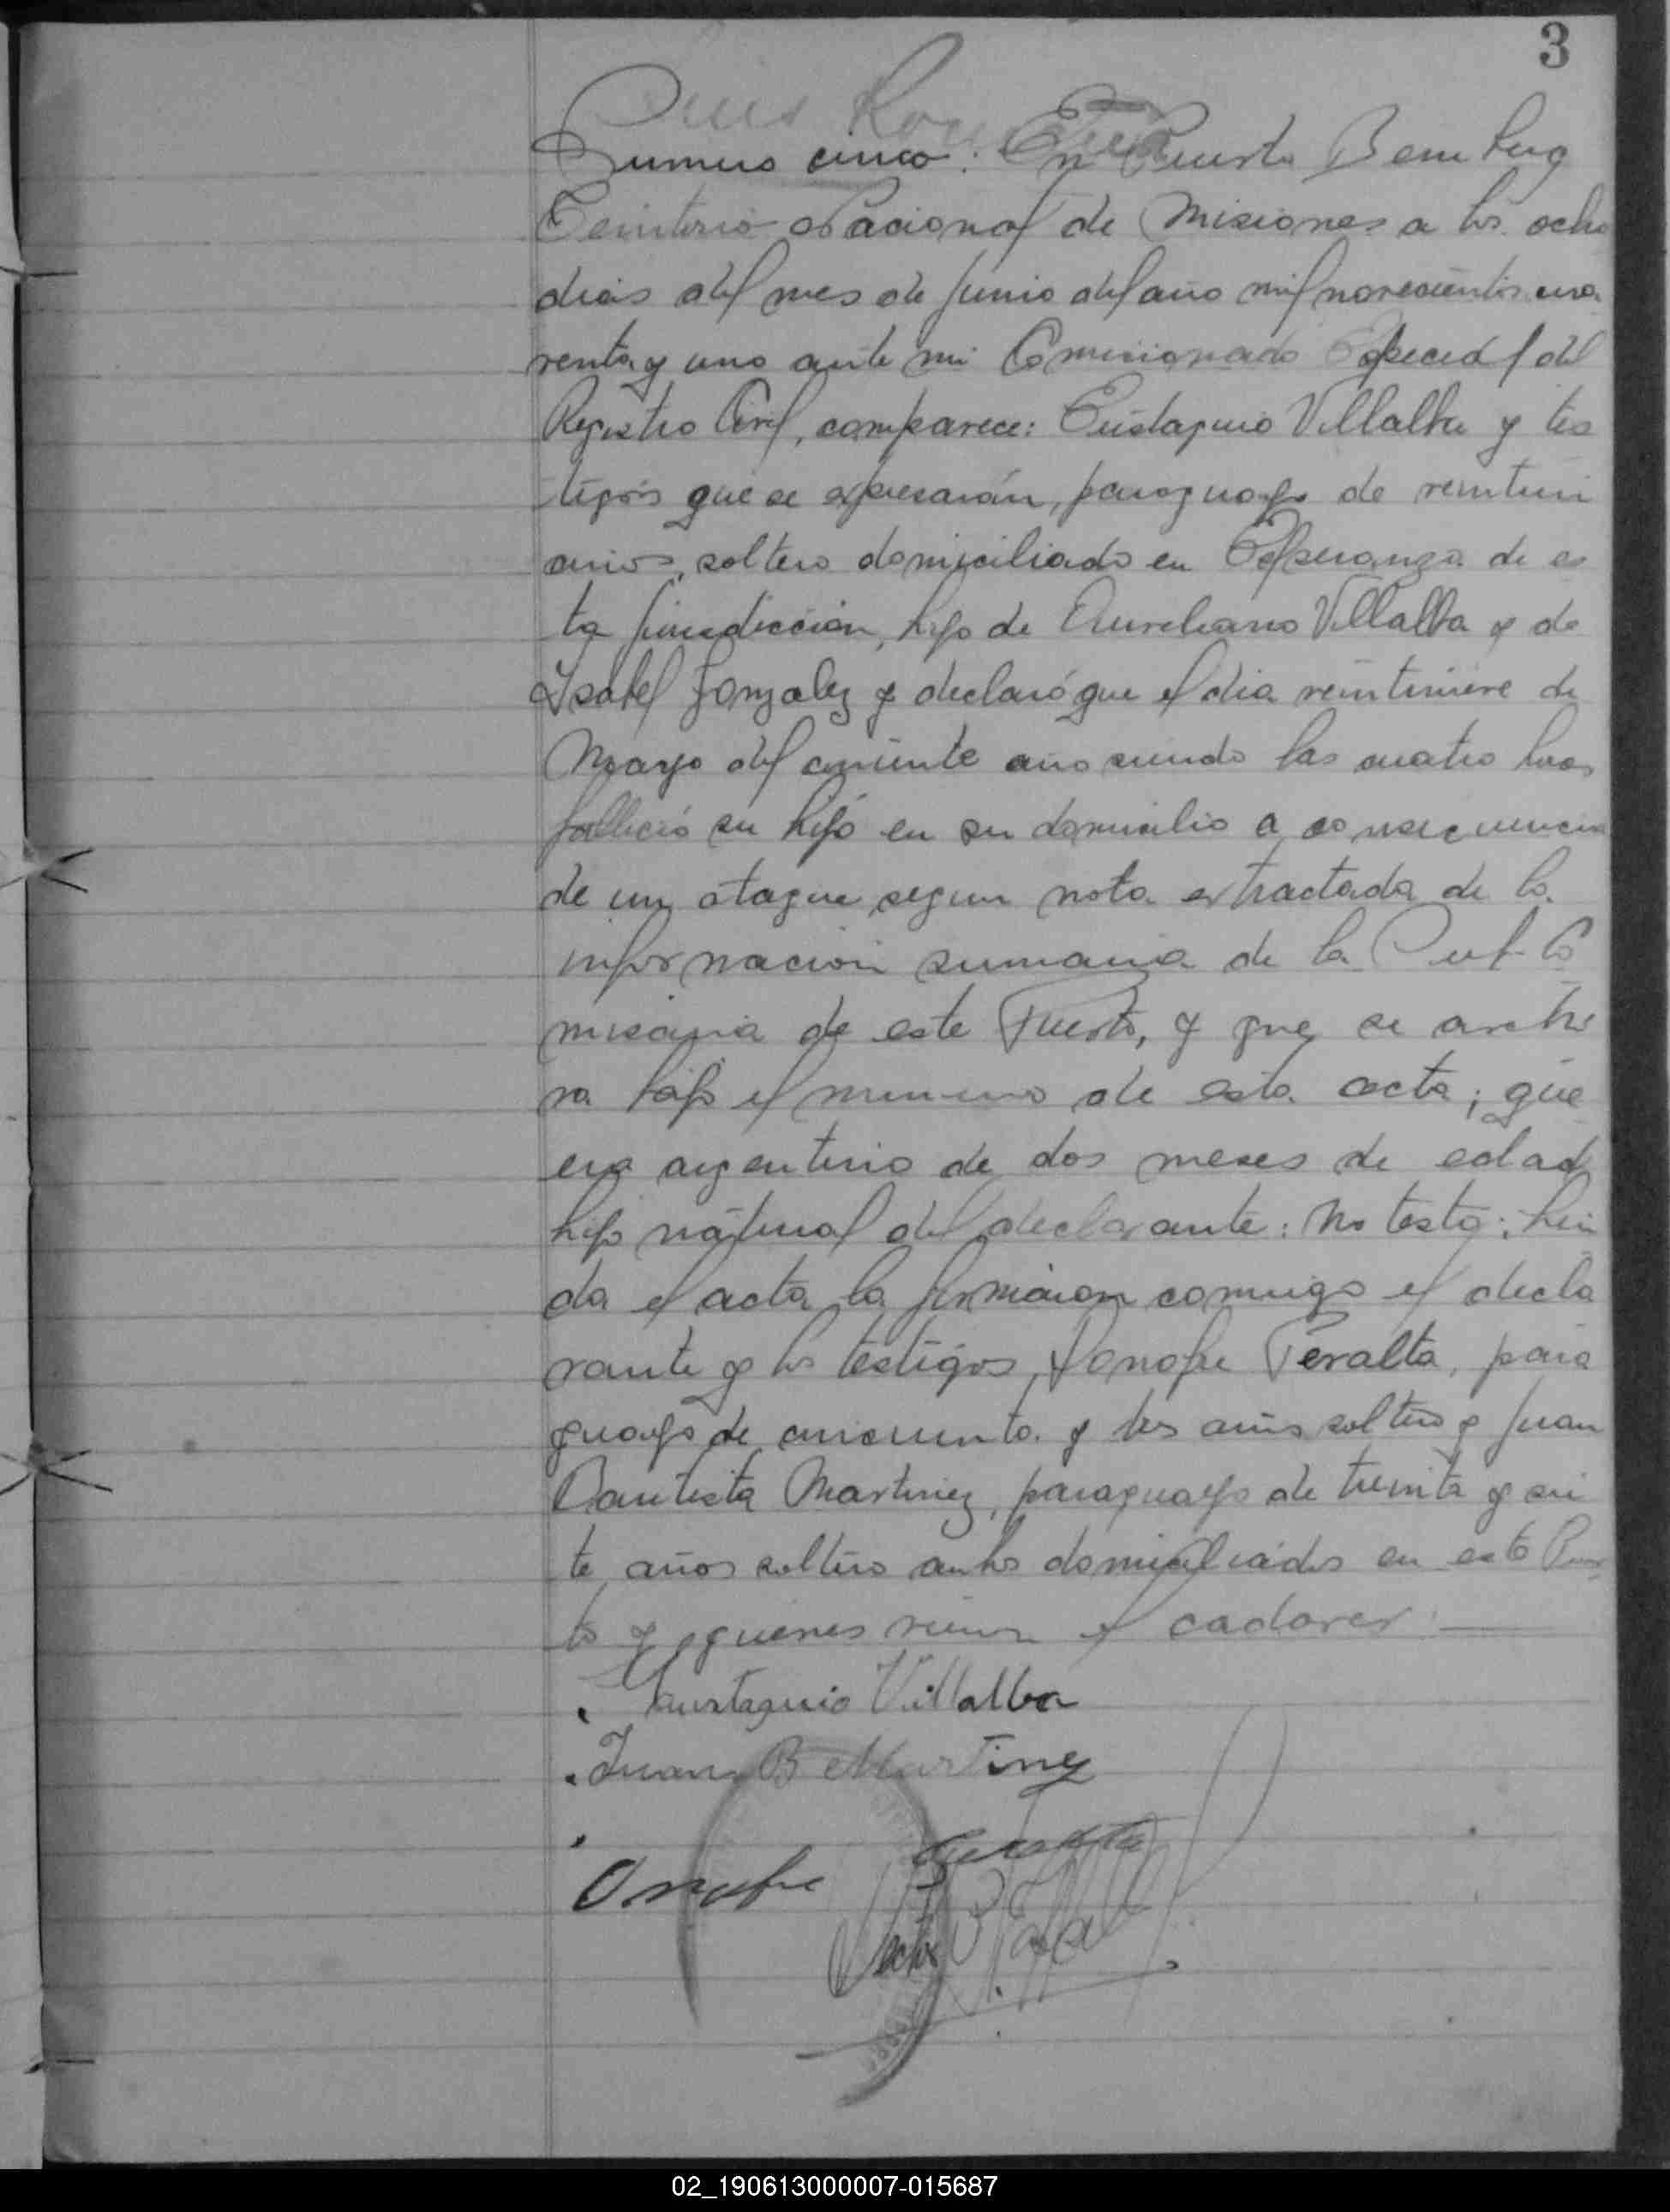 3
Numero cinco: En Puerto Bemberg
Territorio Nacional de Misiones a los ocho
dias del mes de Junio del año mil novecientos cua
renta y uno ante mi Comisionado Especial del
Registro Civil, comparece: Eustaquio Villalba y tes
tigos que se expresarán, paraguayo de veintiun
años, soltero domiciliado en Esperanza de es
ta jurisdiccion, hijo de Aureliano Villalba y de
Isabel Gonzalez y declaró que el dia veintinueve de
Mayo del corriente año siendo las cuatro horas
falleció su hijo en su domicilio a consecuencia
de un ataque segun nota extractada de la
informacion sumaria de la Sub-Co
misaria de este Puerto, y que se archi
va bajo el numero de esta acta; que
era argentino de dos meses de edad
hijo natural del declarante: No testó: Lei
da el acta la firmaron conmigo el decla
rante y los testigos, Onofre Peralta, para
guayo de cincuenta y tres años soltero y Juan
Bautista Martinez, paraguayo de treinta y sie
te años soltero ambos domiciliados en este Puer
to y quienes vieron el cadaver.
Eustaquio Villalba
Juan B Martinez
Onofre Peralta
02_190613000007-015687